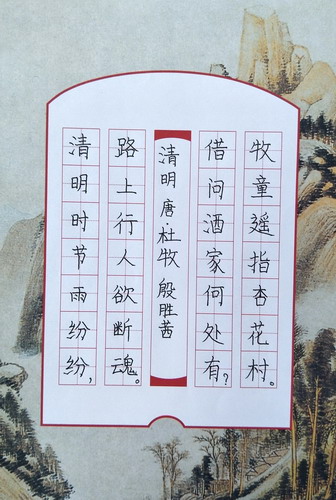 清明时节雨纷纷，
路上行人欲断魂。
清明 唐 杜牧 殷胜茜
借问酒家何处有？
牧童遥指杏花村。